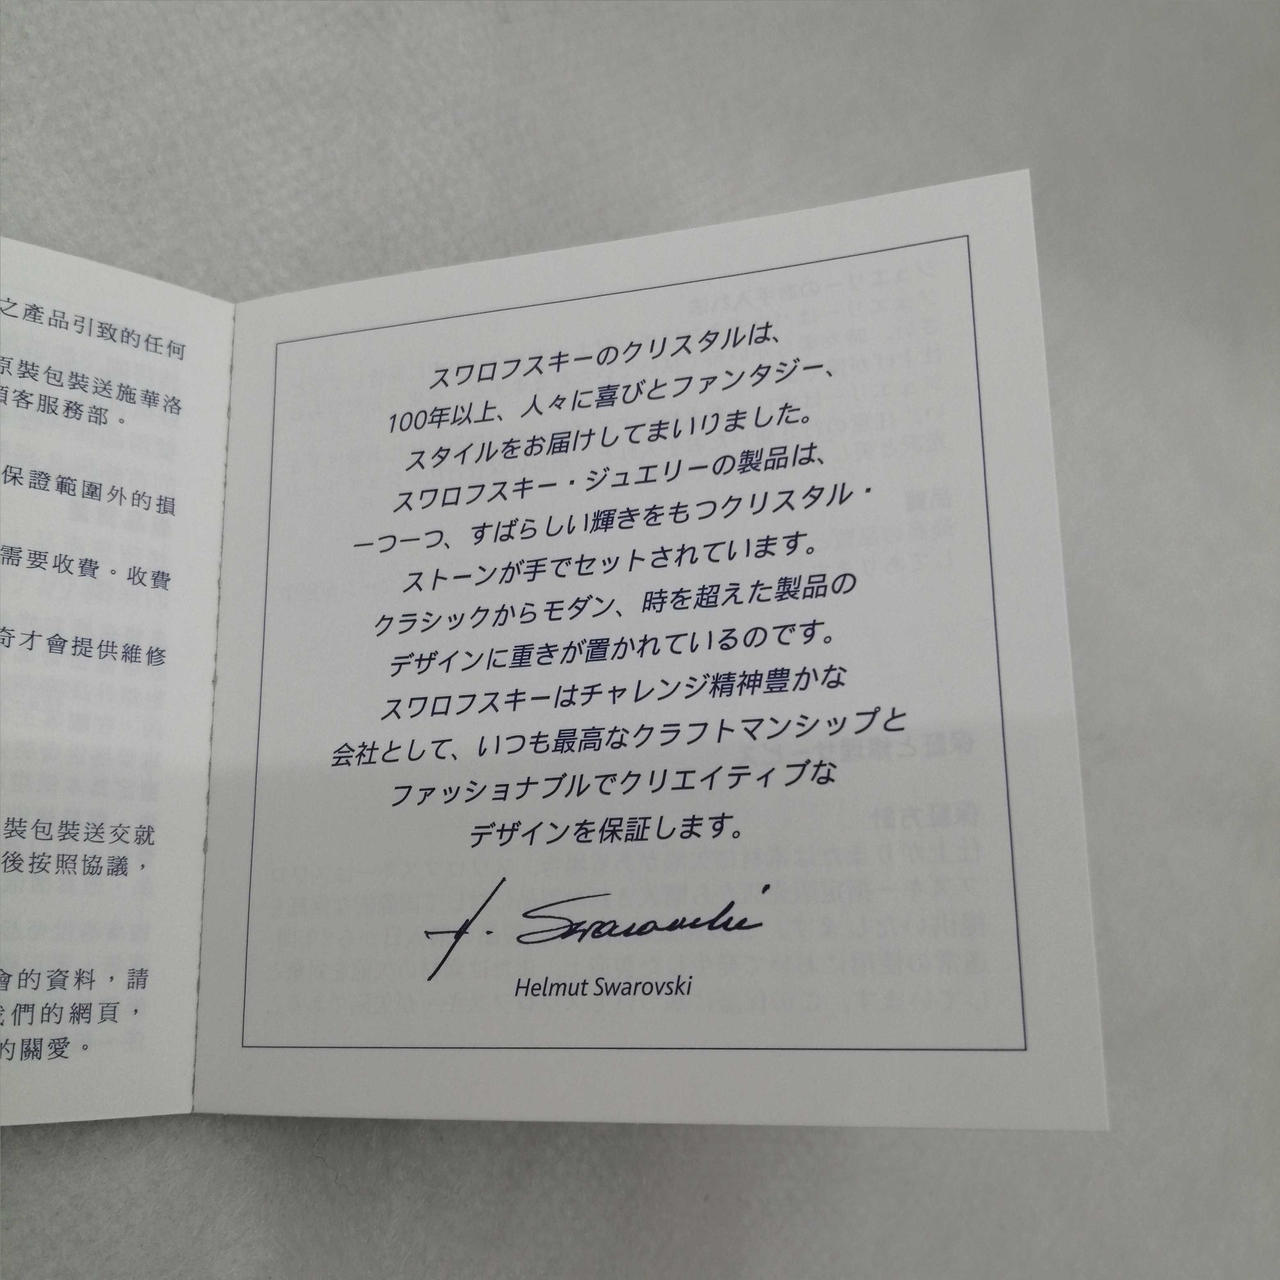 之產品引致的任何
原裝包裝送施華洛
顧客服務部。
保證範圍外的損
需要收費。收費
奇才會提供維修
裝包裝送交就
後按照協議，
會的資料，請
我們的網頁，
的關愛。
スワロフスキーのクリスタルは、
100年以上、人々に喜びとファンタジー、
スタイルをお届けしてまいりました。
スワロフスキー・ジュエリーの製品は、
一つ一つ、すばらしい輝きをもつクリスタル・
ストーンが手でセットされています。
クラシックからモダン、時を超えた製品の
デザインに重きが置かれているのです。
スワロフスキーはチャレンジ精神豊かな
会社として、いつも最高なクラフトマンシップと
ファッショナブルでクリエイティブな
デザインを保証します。
H. Swarovski
Helmut Swarovski